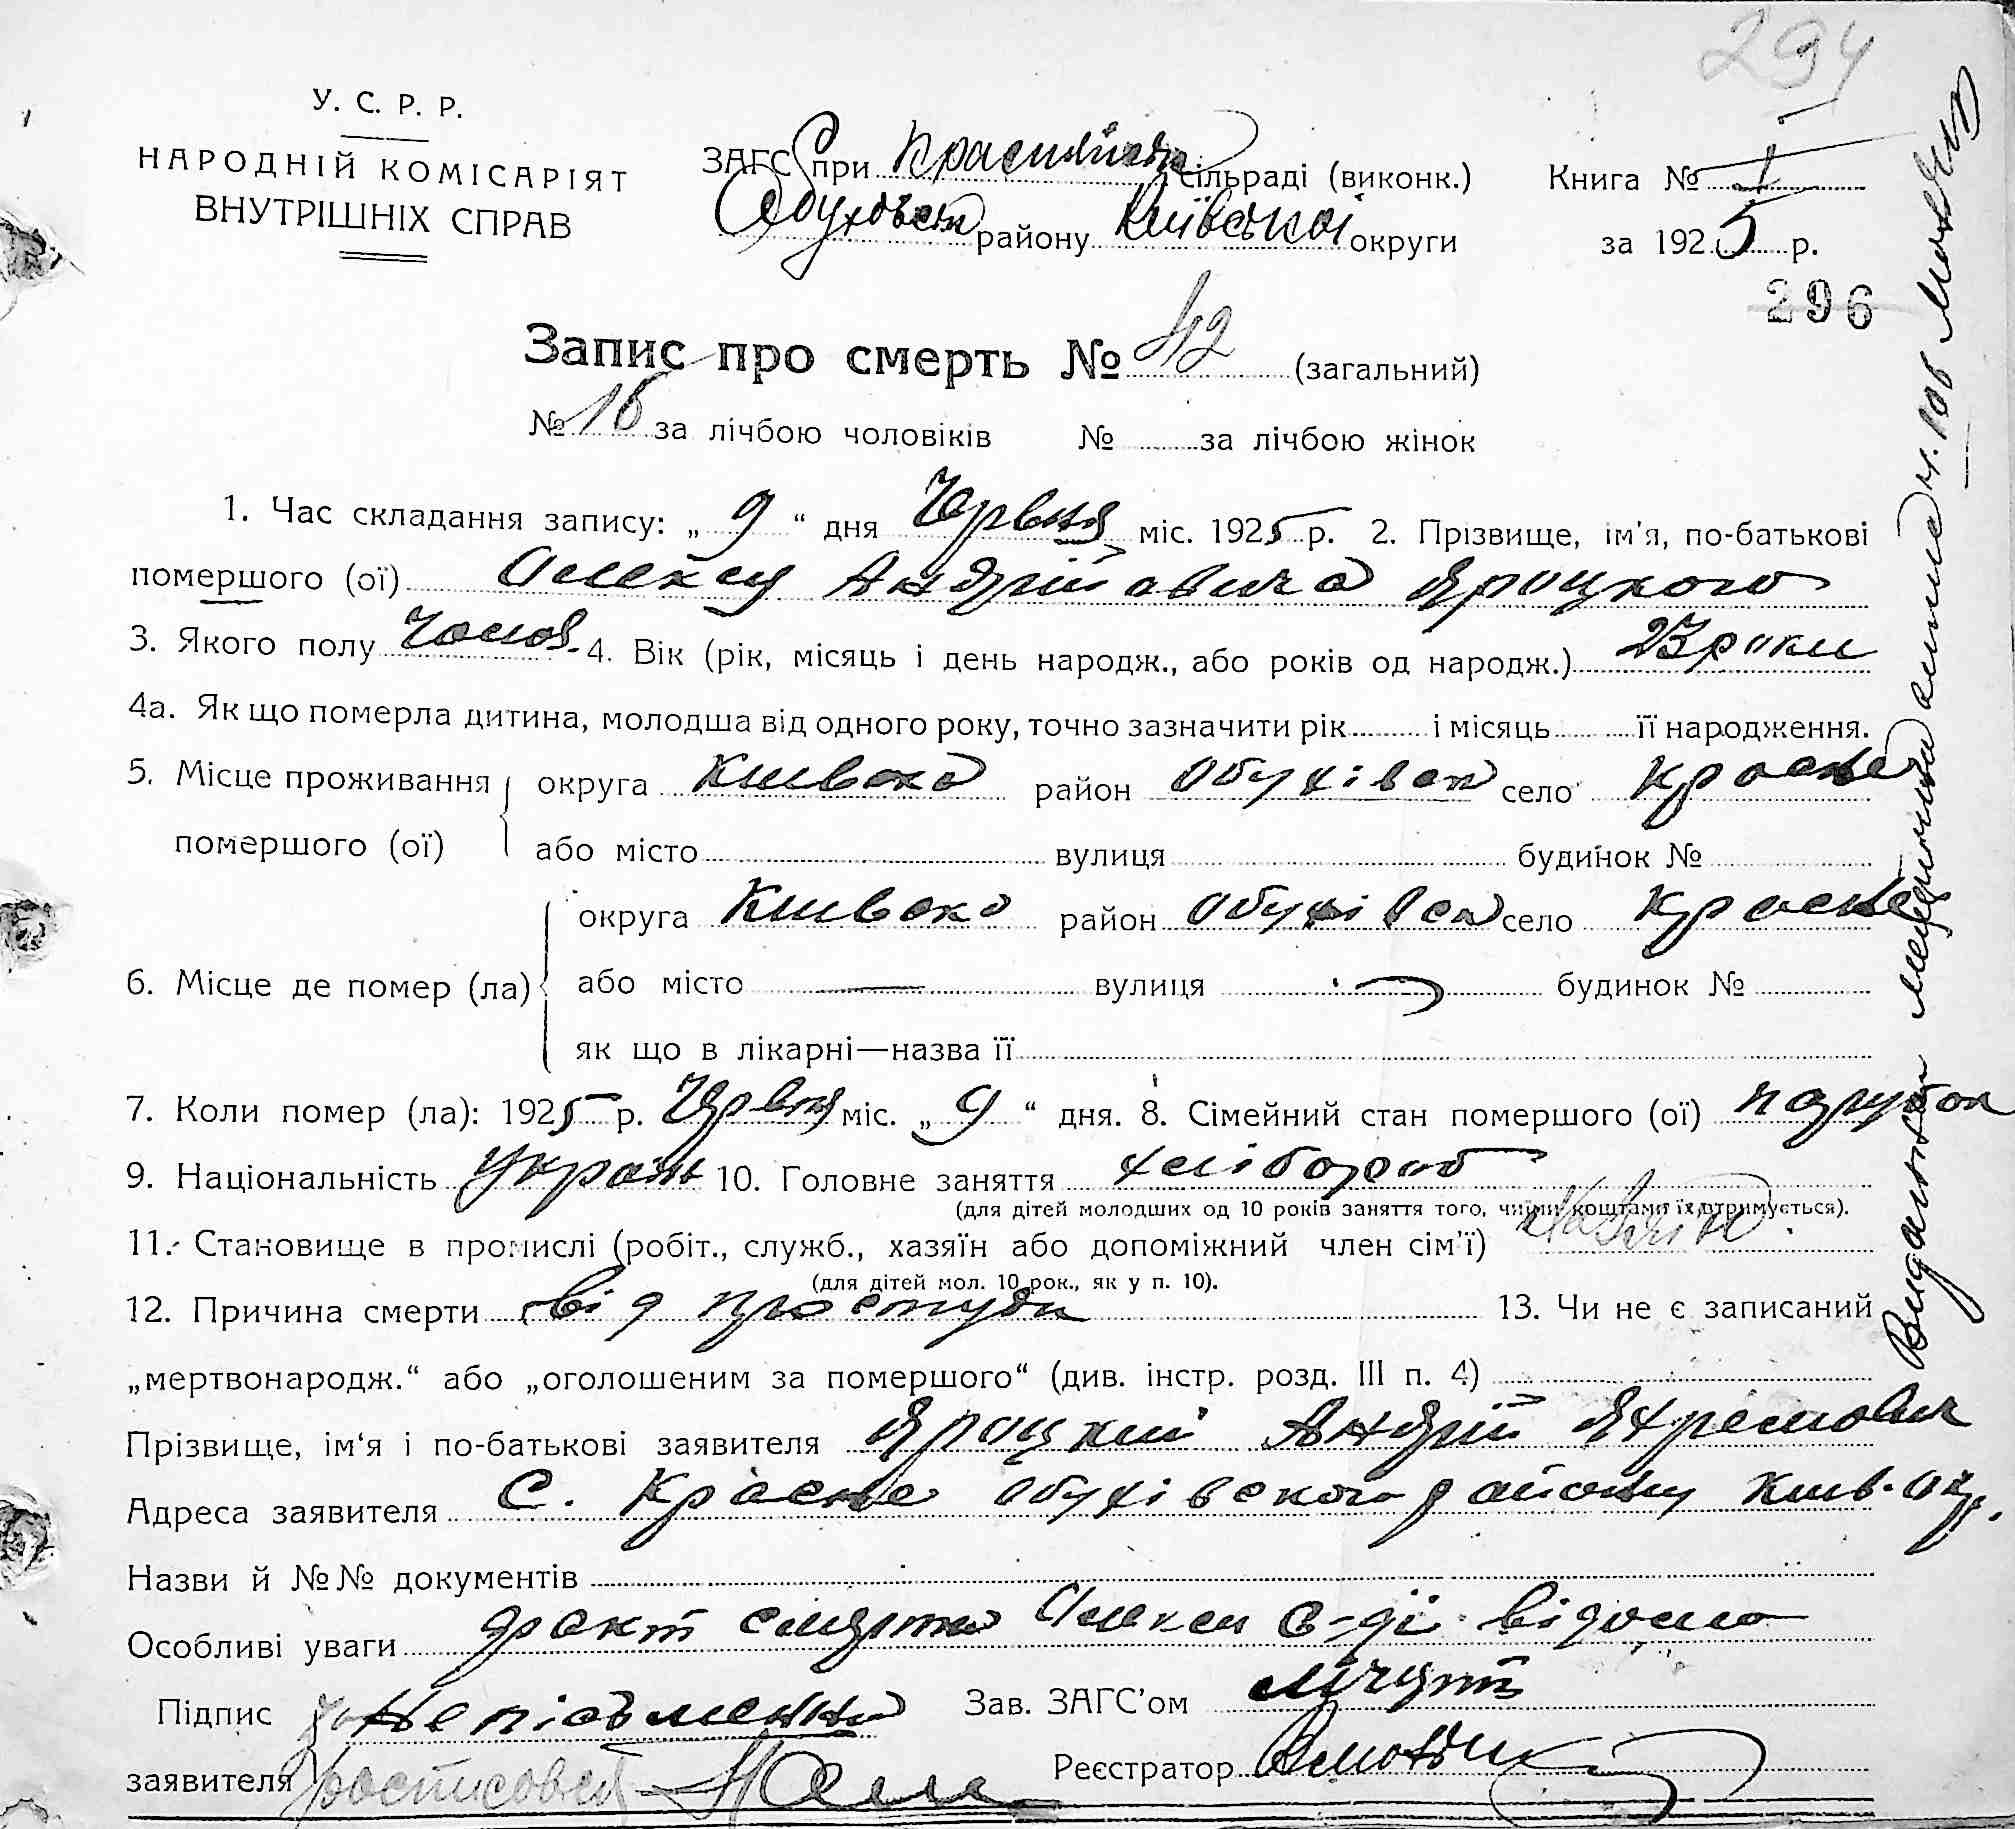 294
У. С. Р. Р.
НАРОДНІЙ КОМІСАРІЯТ
ВНУТРІШНІХ СПРАВ
ЗАГС при Краснянськ сільраді (виконк.)
Обухівськ району Київської округи
Книга № 1
за 1925 р.
296
Запис про смерть № 42 (загальний)
№ 16 за лічбою чоловіків № за лічбою жінок
1. Час складання запису: „ 9 “ дня Червня міс. 1925 р. 2. Прізвище, ім'я, по-батькові
помершого (ої) Олексу Андрійовича Яроцкого
3. Якого полу чолов. 4. Вік (рік, місяць і день народж., або років од народж.) 23 роки
4а. Як що померла дитина, молодша від одного року, точно зазначити рік і місяць її народження.
5. Місце проживання округа Київська район Обухівськ село Красне
помершого (ої) або місто вулиця будинок №
округа Київська район Обухівськ село Красне
6. Місце де помер (ла) або місто — вулиця будинок №
як що в лікарні—назва її
7. Коли помер (ла): 1925 р. Червня міс. „ 9 “ дня. 8. Сімейний стан помершого (ої) парубок
9. Національність Україн 10. Головне заняття хлібороб
(для дітей молодших од 10 років заняття того, чиїми коштами їх утримується).
11. Становище в промислі (робіт., служб., хазяїн або допоміжний член сім'ї)
(для дітей мол. 10 рок., як у п. 10).
12. Причина смерти від простуди 13. Чи не є записаний
„мертвонародж.“ або „оголошеним за помершого“ (див. інстр. розд. III п. 4)
Прізвище, ім'я і по-батькові заявителя Яроцкий Андрій Яхремович
Адреса заявителя С. Красне Обухівского району Київ. окр.
Назви й №№ документів
Особливі уваги факт смерти Олекси с-ді відомо
Підпис неписьменний Зав. ЗАГС'ом
заявителя росписовся Реєстратор